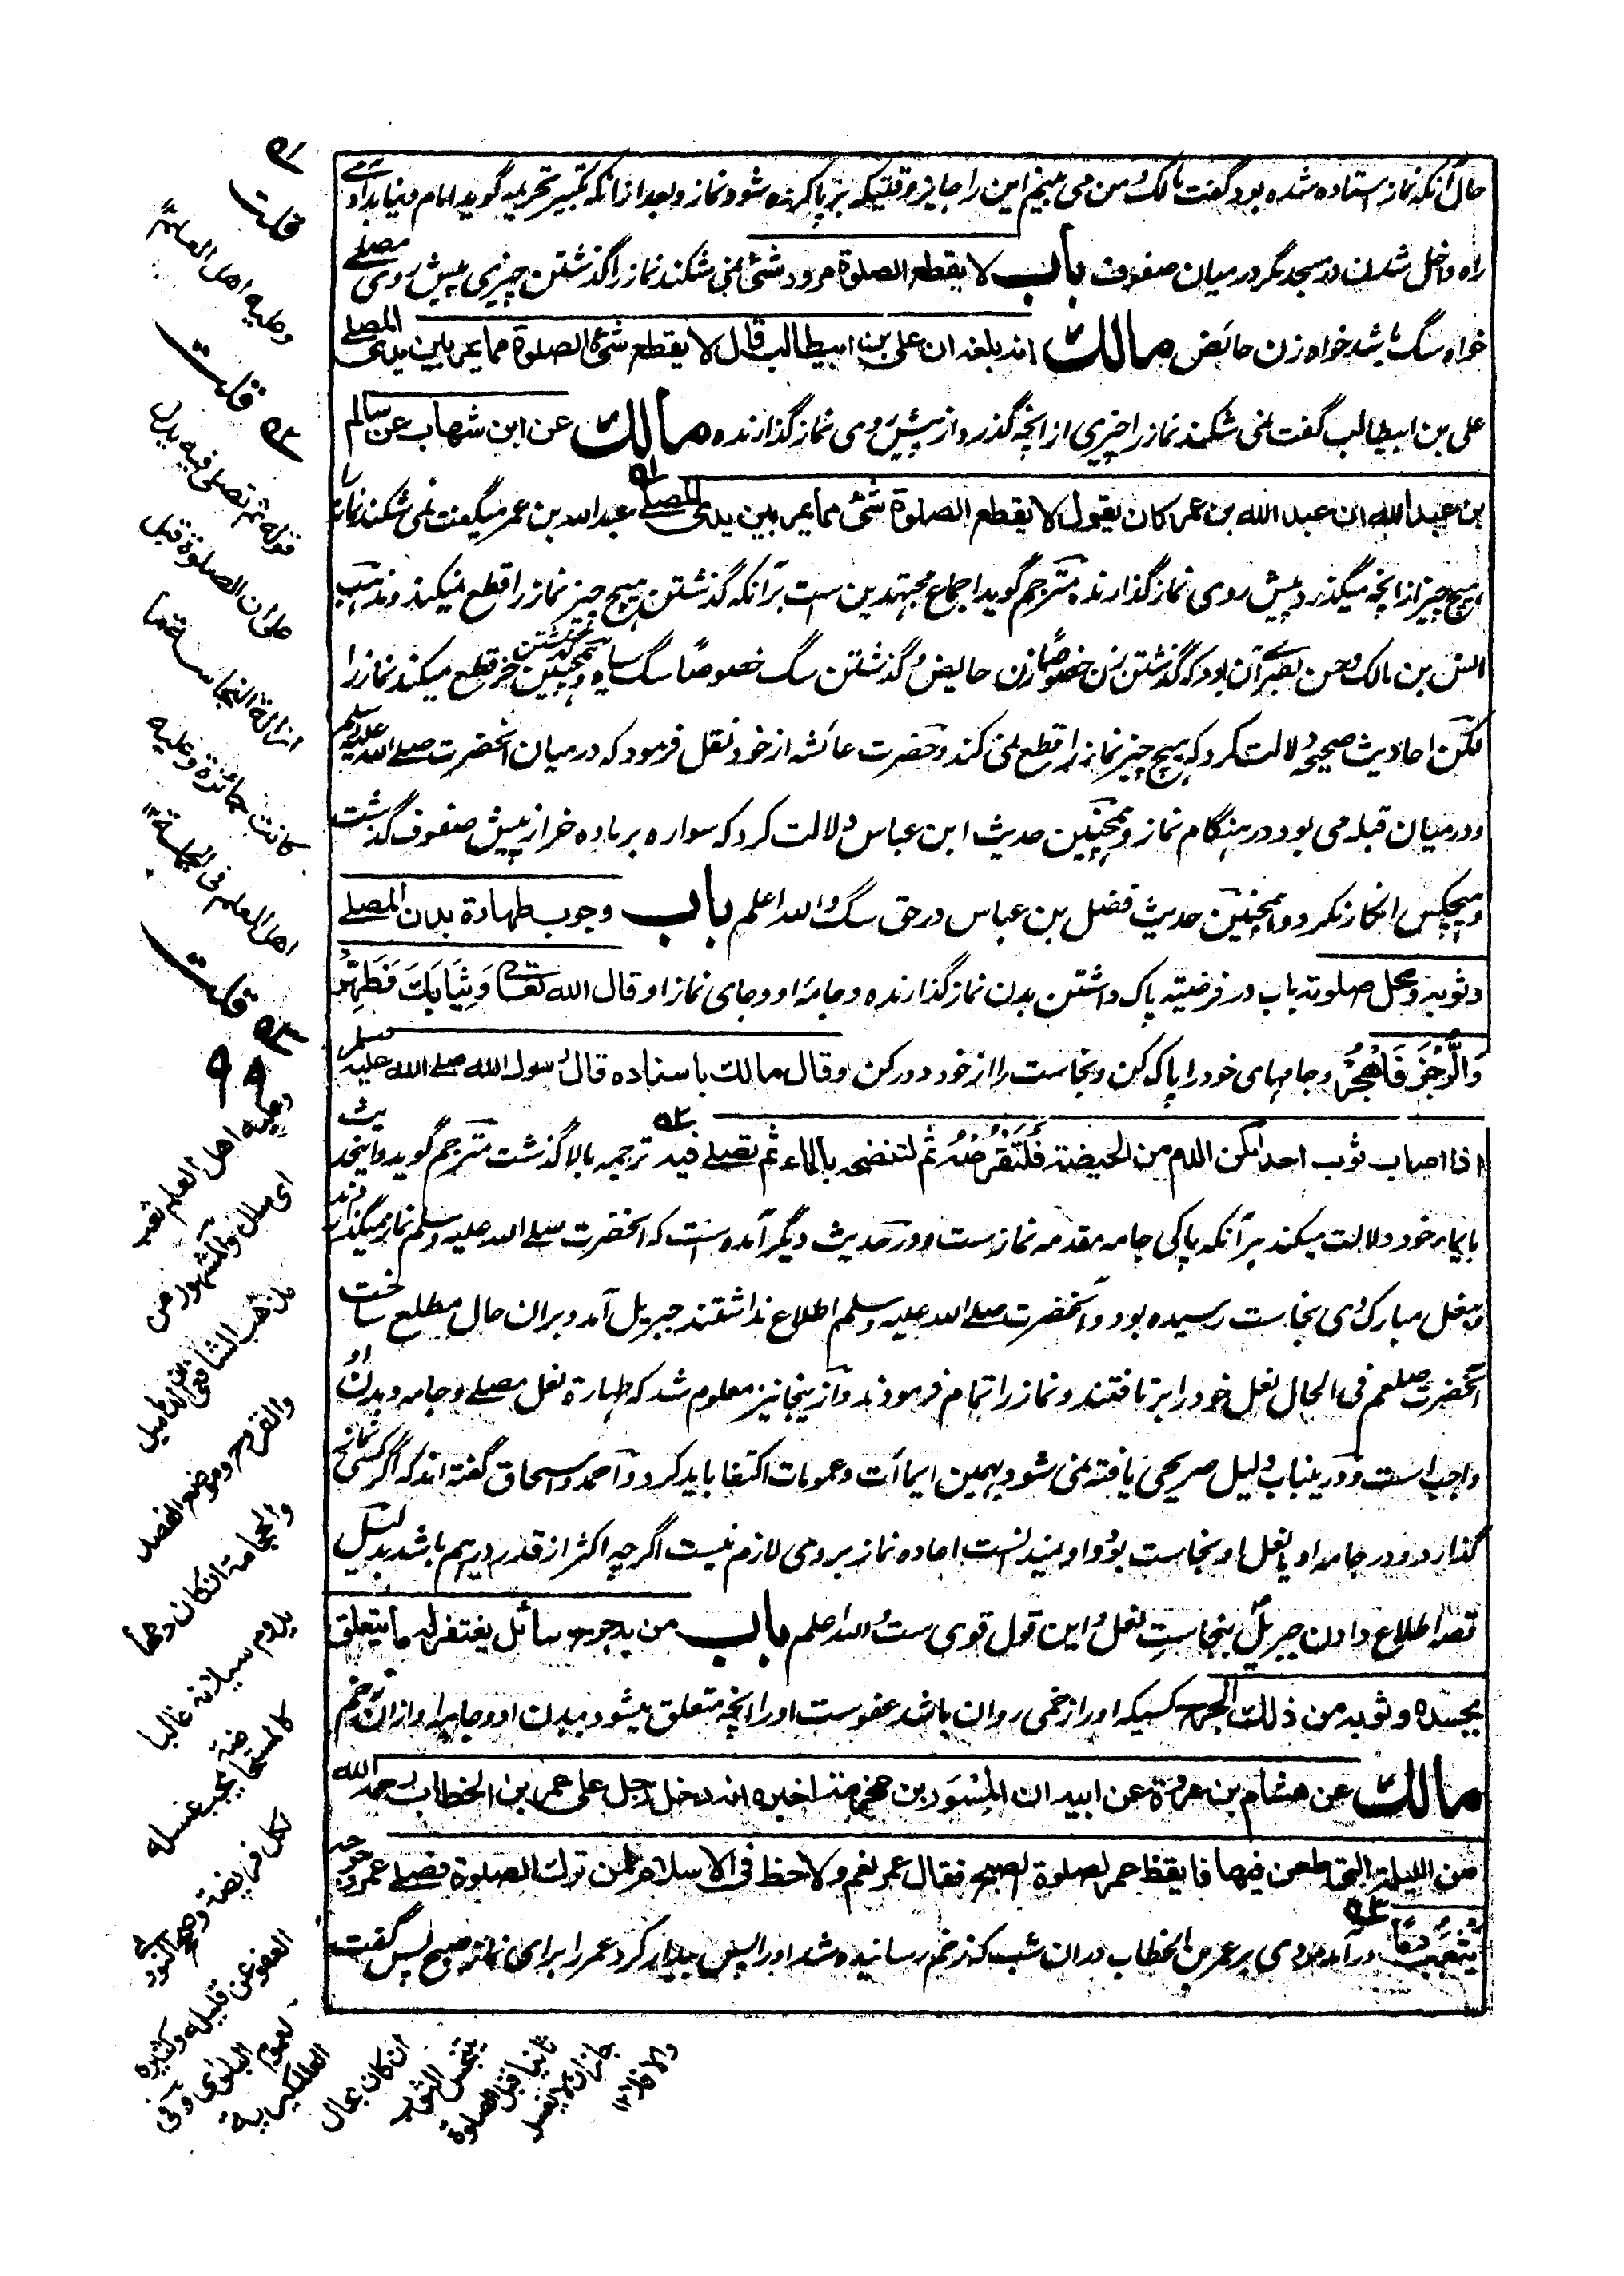 حال آنکه نماز استاده شده بود گفت مالک من می بینم این را جایز وقتیکه برپا کرده شود نماز و بعد از انکه تکبیر تحریمه گوید امام و نیابد آدمی
راه داخل شدن در مسجد مگر درمیان صفوف باب لا يقطع الصلوة مرور شئ نمی شکند نماز را گذشتن چیزی پیش روی مصلے
خواه سگ باشد خواه زن حائض مالك انه بلغه ان على بن ابيطالب قال لا يقطع شئ الصلوة مما يمر بين يدى المصلے
علی بن ابیطالب گفت نمی شکند نماز را چیزی از انچه گذرد از پیش روی نماز گذارنده مالك عن ابن شهاب عن سالم
بن عبد الله ان عبد الله بن عمر كان يقول لا يقطع الصلوة شئ مما يمر بين يدى المصلے عبد الله بن عمر میگفت نمی شکند نماز را
هیچ چیز از انچه میگذرد پیش روی نماز گذارنده مترجم گوید اجماع مجتهدین است برآنکه گذشتن هیچ چیز نماز را قطع نمیکند و مذهب
انس بن مالک و حسن بصری آن بود که گذشتن زن خصوصًا زن حایض و گذشتن سگ خصوصًا سگ سیاه و همچنین گذشتن خر قطع میکند نماز را
لکن احادیث صحیحه دلالت کرد که هیچ چیز نماز را قطع نمی کند و حضرت عائشه از خود نقل فرمود که درمیان آنحضرت صلے الله علیه وسلم
و درمیان قبله می بود در هنگام نماز و همچنین حدیث ابن عباس دلالت کرد که سواره بر ماده خر از پیش صفوف گذشت
و هیچکس انکار نکرد و همچنین حدیث فضل بن عباس در حق سگ والله اعلم باب وجوب طهارة بدن المصلے
وثوبه ومحل صلوته باب در فرضیته پاک داشتن بدن نماز گذارنده و جامه او و جای نماز او قال الله تعالے وَثِيَابَكَ فَطَهِّرْ
وَالرُّجْزَ فَاهْجُرْ و جامهای خود را پاک کن و نجاست را از خود دور کن وقال مالك باسناده قال رسول الله صلے الله عليه وسلم
اذا اصاب ثوب احدىكن الدم من الحيضة فَلْتَقْرُصْهُ ثم لتنضحه بالماء ثم تصلے فيه ترجمه بالا گذشت مترجم گوید و اینحدیث
بایماء خود دلالت میکند برآنکه پاکی جامه مقدمه نماز ست و در حدیث دیگر آمده است که آنحضرت صلے الله علیه وسلم نماز میگذاردند
و بنعل مبارک وی نجاست رسیده بود و آنحضرت صلے الله علیه وسلم اطلاع نداشتند جبریل آمد و بران حال مطلع ساخت
آنحضرت صلعم فی الحال نعل خود را برتافتند و نماز را تمام فرمودند و ازینجا نیز معلوم شد که طهارة نعل مصلے و جامه و بدن او
واجب است و درینباب دلیل صریحی یافته نمی شود بهمین ایماآت و عمومات اکتفا باید کرد و احمد و اسحاق گفته اند که اگر کسی نماز
گذارد و در جامه او یا نعل او نجاست بود و او نمیدانست اعاده نماز بر وی لازم نیست اگرچه اکثر از قدر درهم باشد بدلیل
قصه اطلاع دادن جبریل بنجاست نعل و این قول قوی ست والله اعلم باب من به جرح سائل يغتفر له ما يتعلق
بجسده وثوبه من ذلك الجرح کسیکه او را زخمی روان باشد عفوست او را انچه متعلق میشود ببدن او و جامه او ازان زخم
مالك عن هشام بن عروة عن ابيه ان المِسْوَر بن مخرمة اخبره انه دخل رجل على عمر بن الخطاب رحمه الله
من الليلة التى طعن فيها فايقظ عمر لصلوة الصبح فقال عمر نعم ولا حظ فى الاسلام لمن ترك الصلوة فصلے عمر وجرحه
يَثْعَبُ دمًا در آمد مردی بر عمر بن الخطاب دران شب که زخم رسانیده شد او را پس بیدار کرد عمر را برای نماز صبح پس گفت
قلت
وعليه اهل العلم
قلت
قوله ثم تصلى فيه يدل
على ان الصلوة قبل
ازالة النجاسة ما
كانت جائزة وعليه
اهل العلم فى الجملة
قلت
وعليه اهل العلم
اى سال والمشهور من
مذهب الشافعى
والقروح وموضع الفصد
والحجامة ان كان دمها
يدوم سيلانه غالبا
كالمستحاضة يجب غسله
لكل فريضة وصحح النووى
العفو عن قليله وكثيره
لعموم البلوى وفى
العالمكيرية
ان كان بحال
يتنجس الثوب
ثانيا قبل الصلوة
جاز ان لا يغسل
والا فلا ١٢